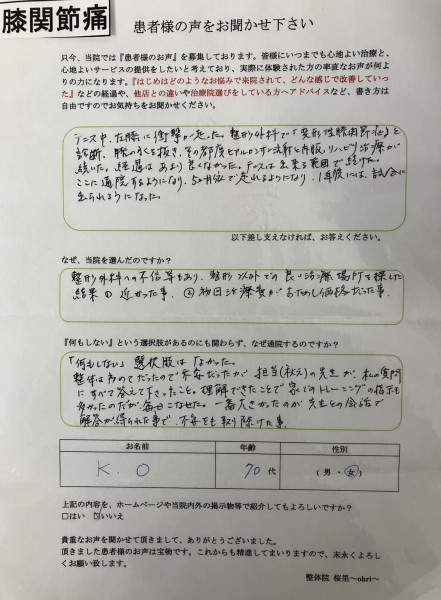 膝関節痛
患者様の声をお聞かせ下さい
只今、当院では『患者様のお声』を募集しております。皆様にいつまでも心地よい治療と、
心地よいサービスの提供をしたいと考えており、実際に体験された方の率直なお声が何よ
りの力になります。『はじめはどのようなお悩みで来院されて、どんな感じで改善していっ
た』などの経過や、他店との違いや治療院選びをしている方へアドバイスなど、書き方は
自由ですのでお気持ちをお聞かせください。
テニス中、左膝に衝撃が走った。整形外科で「変形性膝関節症」と
診断、膝の水を抜き、その都度ヒアルロンサン注射と内服、リハビリ治療が
続いた。経過はあまり良くなかった。テニスは出来る範囲で続けた。
ここに通院するようになり、5ヶ月位で走れるようになり、1年後には、試合に
出られるようになった。
以下差し支えなければ、お答えください。
なぜ、当院を選んだのですか？
整形外科への不信等もあり、整形以外での良い治療場所を探した
結果 ① 近かった事、② 初回治療費がおためし価格だった事。
『何もしない』という選択肢があるのにも関わらず、なぜ通院するのですか？
「何もしない」選択肢はなかった。
整体は初めてだったので不安だったが、担当(秋元)の先生が、私の質問
にすべて答えて下さったこと。理解できたことで家でのトレーニングの指示も
多かったのだが毎日こなせた。一番大きかったのが先生との会話で
解答が得られた事で、不安をも取り除けた事。
お名前 年齢 性別
K.O 70代 (男・女)
上記の内容を、ホームページや当院内外の掲示物等で紹介してもよろしいですか？
□はい ☑いいえ
貴重なお声を聞かせて頂きまして、ありがとうございました。
頂きました患者様のお声は宝物です。これからも精進してまいりますので、末永くよろし
くお願い致します。
整体院 桜里～ohri～